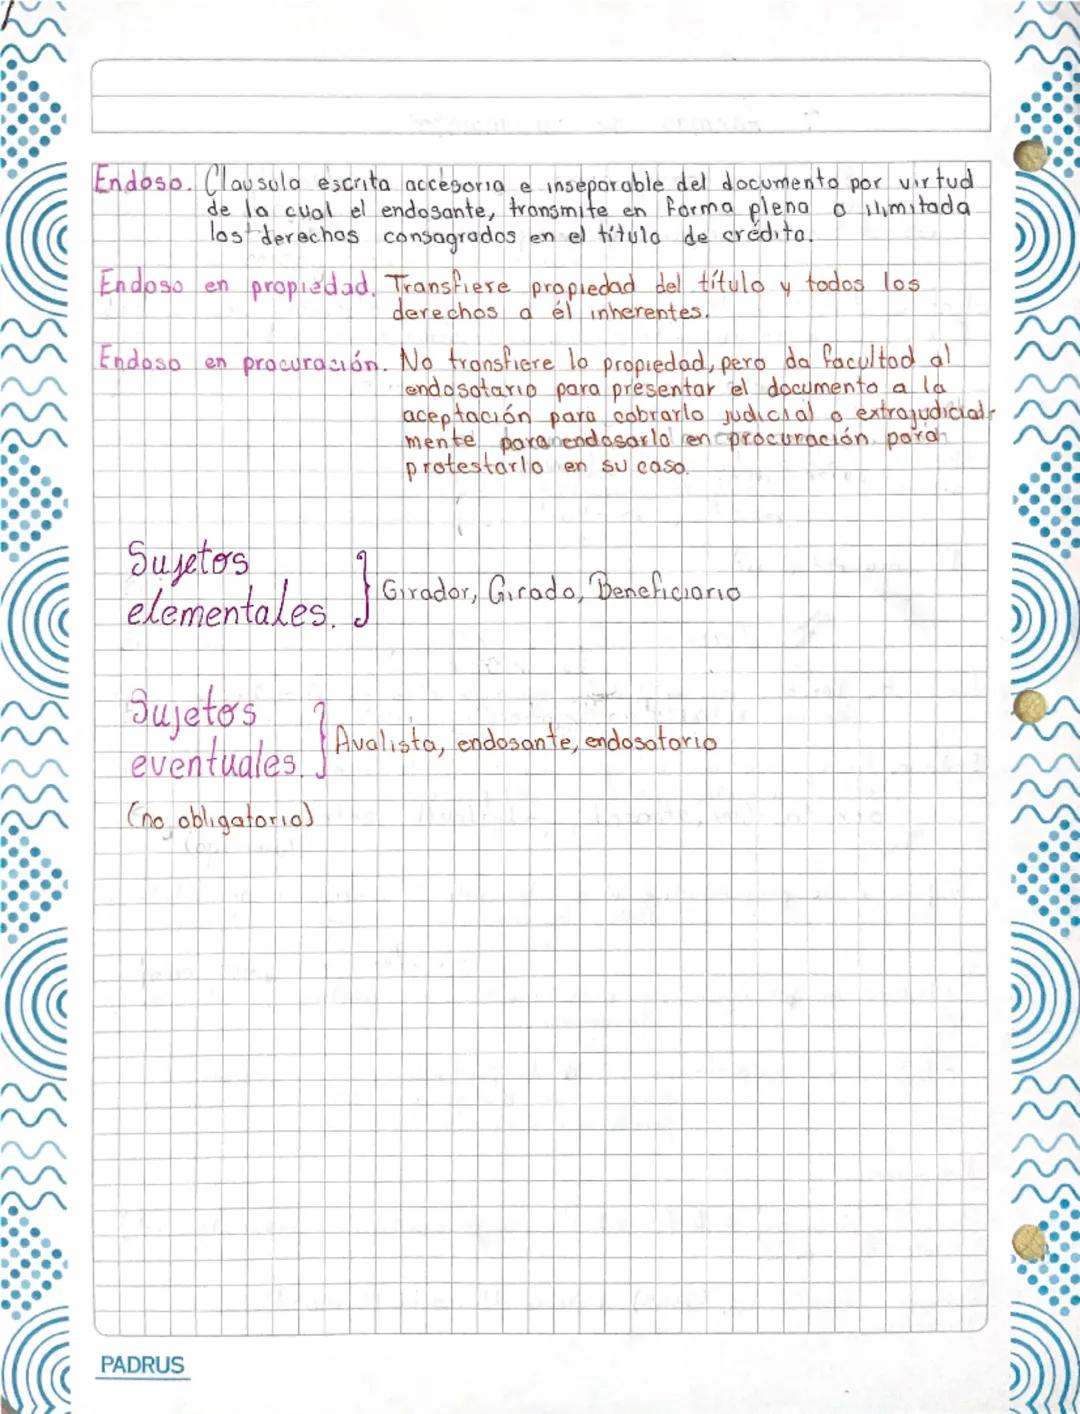 Endoso. Clausula escrita accesoria e inseparable del documento por virtud
de la cual el endosante, transmite en forma plena o ilimitada
los derechos consagrados en el título de crédito.
Endoso en propiedad. Transfiere propiedad del título y todos los
derechos a él inherentes.
Endoso en procuración. No transfiere la propiedad, pero da facultad al
endosatario para presentar el documento a la
aceptación para cobrarlo judicial o extrajudicial-
mente para endosarlo en procuración para
protestarlo en su caso.
Sujetos
elementales. } Girador, Girado, Beneficiario
Sujetos
eventuales. } Avalista, endosante, endosatario
(no obligatorio)
PADRUS